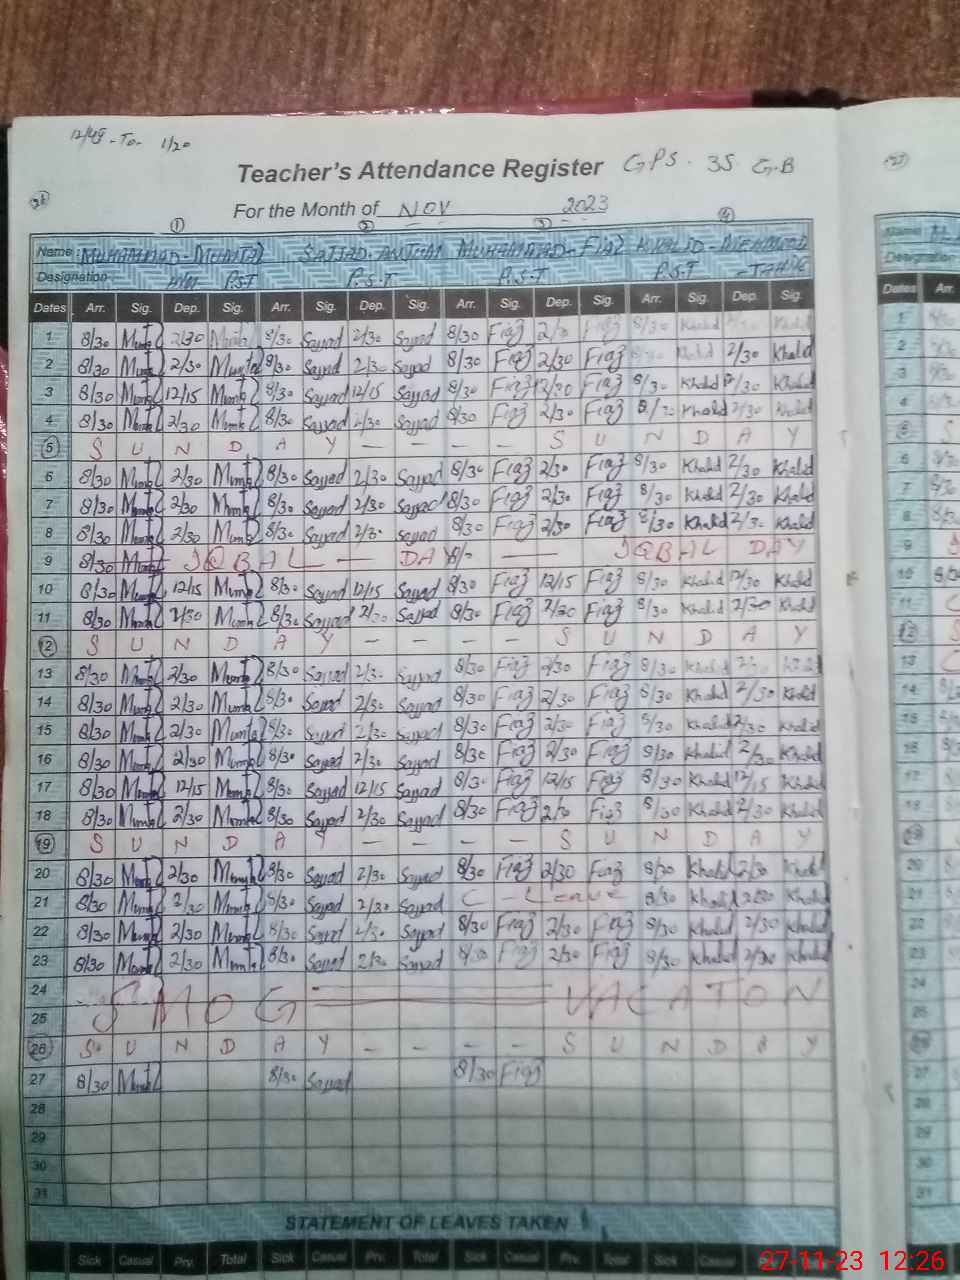 12/45 - To - 1/20
Teacher's Attendance Register GPS. 35. G-B
For the Month of NOV 2023
① ② ③ ④
Name MUHAMMAD-MUMTAZ SAJJAD-ANJUM MUHAMMAD-FIAZ KHALID-MEHMOOD
Designation P.S.T P.S.T P.S.T P.S.T -TAHIR
Dates Arr. Sig. Dep. Sig. Arr. Sig. Dep. Sig. Arr. Sig. Dep. Sig. Arr. Sig. Dep. Sig.
1 8/30 Mumtaz 2/30 Mumtaz 8/30 Sajjad 2/30 Sajjad 8/30 Fiaz Fiaz 8/30 Khalid Khalid
2 8/30 Mumtaz 2/30 Mumtaz 8/30 Sajjad 2/30 Sajjad 8/30 Fiaz 2/30 Fiaz Khalid 2/30 Khalid
3 8/30 Mumtaz 12/15 Mumtaz 8/30 Sajjad 12/15 Sajjad 8/30 Fiaz Fiaz 8/30 Khalid Khalid
4 8/30 Mumtaz 2/30 Mumtaz 8/30 Sajjad 2/30 Sajjad 8/30 Fiaz 2/30 Fiaz 8/30 Khalid 2/30 Khalid
5 S U N D A Y - - - - S U N D A Y
6 8/30 Mumtaz 2/30 Mumtaz 8/30 Sajjad 2/30 Sajjad 8/30 Fiaz 2/30 Fiaz 8/30 Khalid 2/30 Khalid
7 8/30 Mumtaz 2/30 Mumtaz 8/30 Sajjad 2/30 Sajjad 8/30 Fiaz 2/30 Fiaz 8/30 Khalid 2/30 Khalid
8 8/30 Mumtaz 2/30 Mumtaz 8/30 Sajjad 2/30 Sajjad 8/30 Fiaz 2/30 Fiaz 8/30 Khalid 2/30 Khalid
9 8/30 Mumtaz - IQBAL - DAY 8/ - IQBAL DAY
10 8/30 Mumtaz 12/15 Mumtaz 8/30 Sajjad 12/15 Sajjad 8/30 Fiaz 12/15 Fiaz 8/30 Khalid Khalid
11 8/30 Mumtaz 2/30 Mumtaz 8/30 Sajjad 2/30 Sajjad 8/30 Fiaz 2/30 Fiaz 8/30 Khalid 2/30 Khalid
12 S U N D A Y - - - - S U N D A Y
13 8/30 Mumtaz 2/30 Mumtaz 8/30 Sajjad 2/30 Sajjad 8/30 Fiaz 2/30 Fiaz 8/30 Khalid 2/30 Khalid
14 8/30 Mumtaz 2/30 Mumtaz 8/30 Sajjad 2/30 Sajjad 8/30 Fiaz 2/30 Fiaz 8/30 Khalid 2/30 Khalid
15 8/30 Mumtaz 2/30 Mumtaz 8/30 Sajjad 2/30 Sajjad 8/30 Fiaz 2/30 Fiaz 8/30 Khalid 2/30 Khalid
16 8/30 Mumtaz 2/30 Mumtaz 8/30 Sajjad 2/30 Sajjad 8/30 Fiaz 2/30 Fiaz 8/30 Khalid 2/30 Khalid
17 8/30 Mumtaz 12/15 Mumtaz 8/30 Sajjad 12/15 Sajjad 8/30 Fiaz 12/15 Fiaz 8/30 Khalid 12/15 Khalid
18 8/30 Mumtaz 2/30 Mumtaz 8/30 Sajjad 2/30 Sajjad 8/30 Fiaz 2/30 Fiaz 8/30 Khalid 2/30 Khalid
19 S U N D A Y - - - - S U N D A Y
20 8/30 Mumtaz 2/30 Mumtaz 8/30 Sajjad 2/30 Sajjad 8/30 Fiaz 2/30 Fiaz 8/30 Khalid 2/30 Khalid
21 8/30 Mumtaz 2/30 Mumtaz 8/30 Sajjad 2/30 Sajjad C - Leave 8/30 Khalid 2/30 Khalid
22 8/30 Mumtaz 2/30 Mumtaz 8/30 Sajjad 2/30 Sajjad 8/30 Fiaz 2/30 Fiaz 8/30 Khalid 2/30 Khalid
23 8/30 Mumtaz 2/30 Mumtaz 8/30 Sajjad 2/30 Sajjad 8/30 Fiaz 2/30 Fiaz 8/30 Khalid 2/30 Khalid
24 SMOG VACATION
25
26 S U N D A Y - - - - S U N D A Y
27 8/30 Mumtaz 8/30 Sajjad 8/30 Fiaz
28
29
30
31
STATEMENT OF LEAVES TAKEN
Sick Casual Prv. Total Sick Casual Prv. Total Sick Casual Prv. Total Sick Casual
27-11-23 12:26